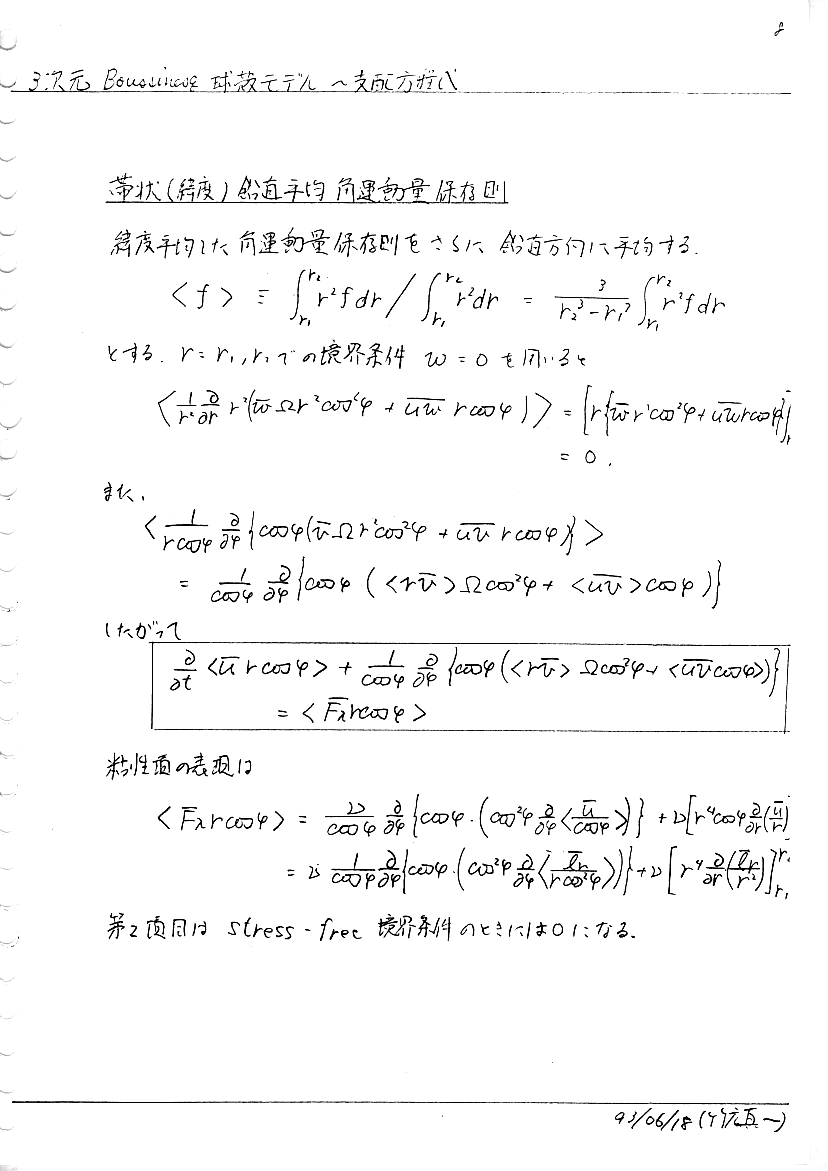 8
3次元 Boussinesq 球殻モデル ～支配方程式
帯状(緯度)鉛直平均 角運動量保存則
緯度平均した 角運動量保存則をさらに 鉛直方向に平均する.
< f > ≡ ∫_{r₁}^{r₂} r² f dr / ∫_{r₁}^{r₂} r² dr = 3/(r₂³ − r₁³) ∫_{r₁}^{r₂} r² f dr
とする. r = r₁, r₂ での境界条件 w = 0 を用いると
< 1/r² ∂/∂r r²( w̅ Ω r² cos²φ + \overline{uw} r cosφ ) > = [ r{ w̅ r² cos²φ + \overline{uw} r cosφ }]
= 0.
また,
< 1/(r cosφ) ∂/∂φ { cosφ ( v̅ Ω r² cos²φ + \overline{uv} r cosφ )} >
= 1/cosφ ∂/∂φ { cosφ ( < r v̅ > Ω cos²φ + < \overline{uv} > cosφ )}
したがって
∂/∂t < u̅ r cosφ > + 1/cosφ ∂/∂φ { cosφ ( < r v̅ > Ω cos²φ + < \overline{uv} cosφ > )}
= < F̅_λ r cosφ >
粘性項の表現は
< F̅_λ r cosφ > = ν/cosφ ∂/∂φ { cosφ · ( cos²φ ∂/∂φ < u̅/cosφ > )} + ν [ r⁴ cosφ ∂/∂r ( u̅/r )
= ν 1/cosφ ∂/∂φ { cosφ · ( cos²φ ∂/∂φ < l̅_r/(r cos²φ) > )} + ν [ r⁴ ∂/∂r ( l̅_r/r² ) ]_{r₁}^{r₂}
第2項目は stress-free 境界条件 のときには0になる.
93/06/18 (竹広真一)